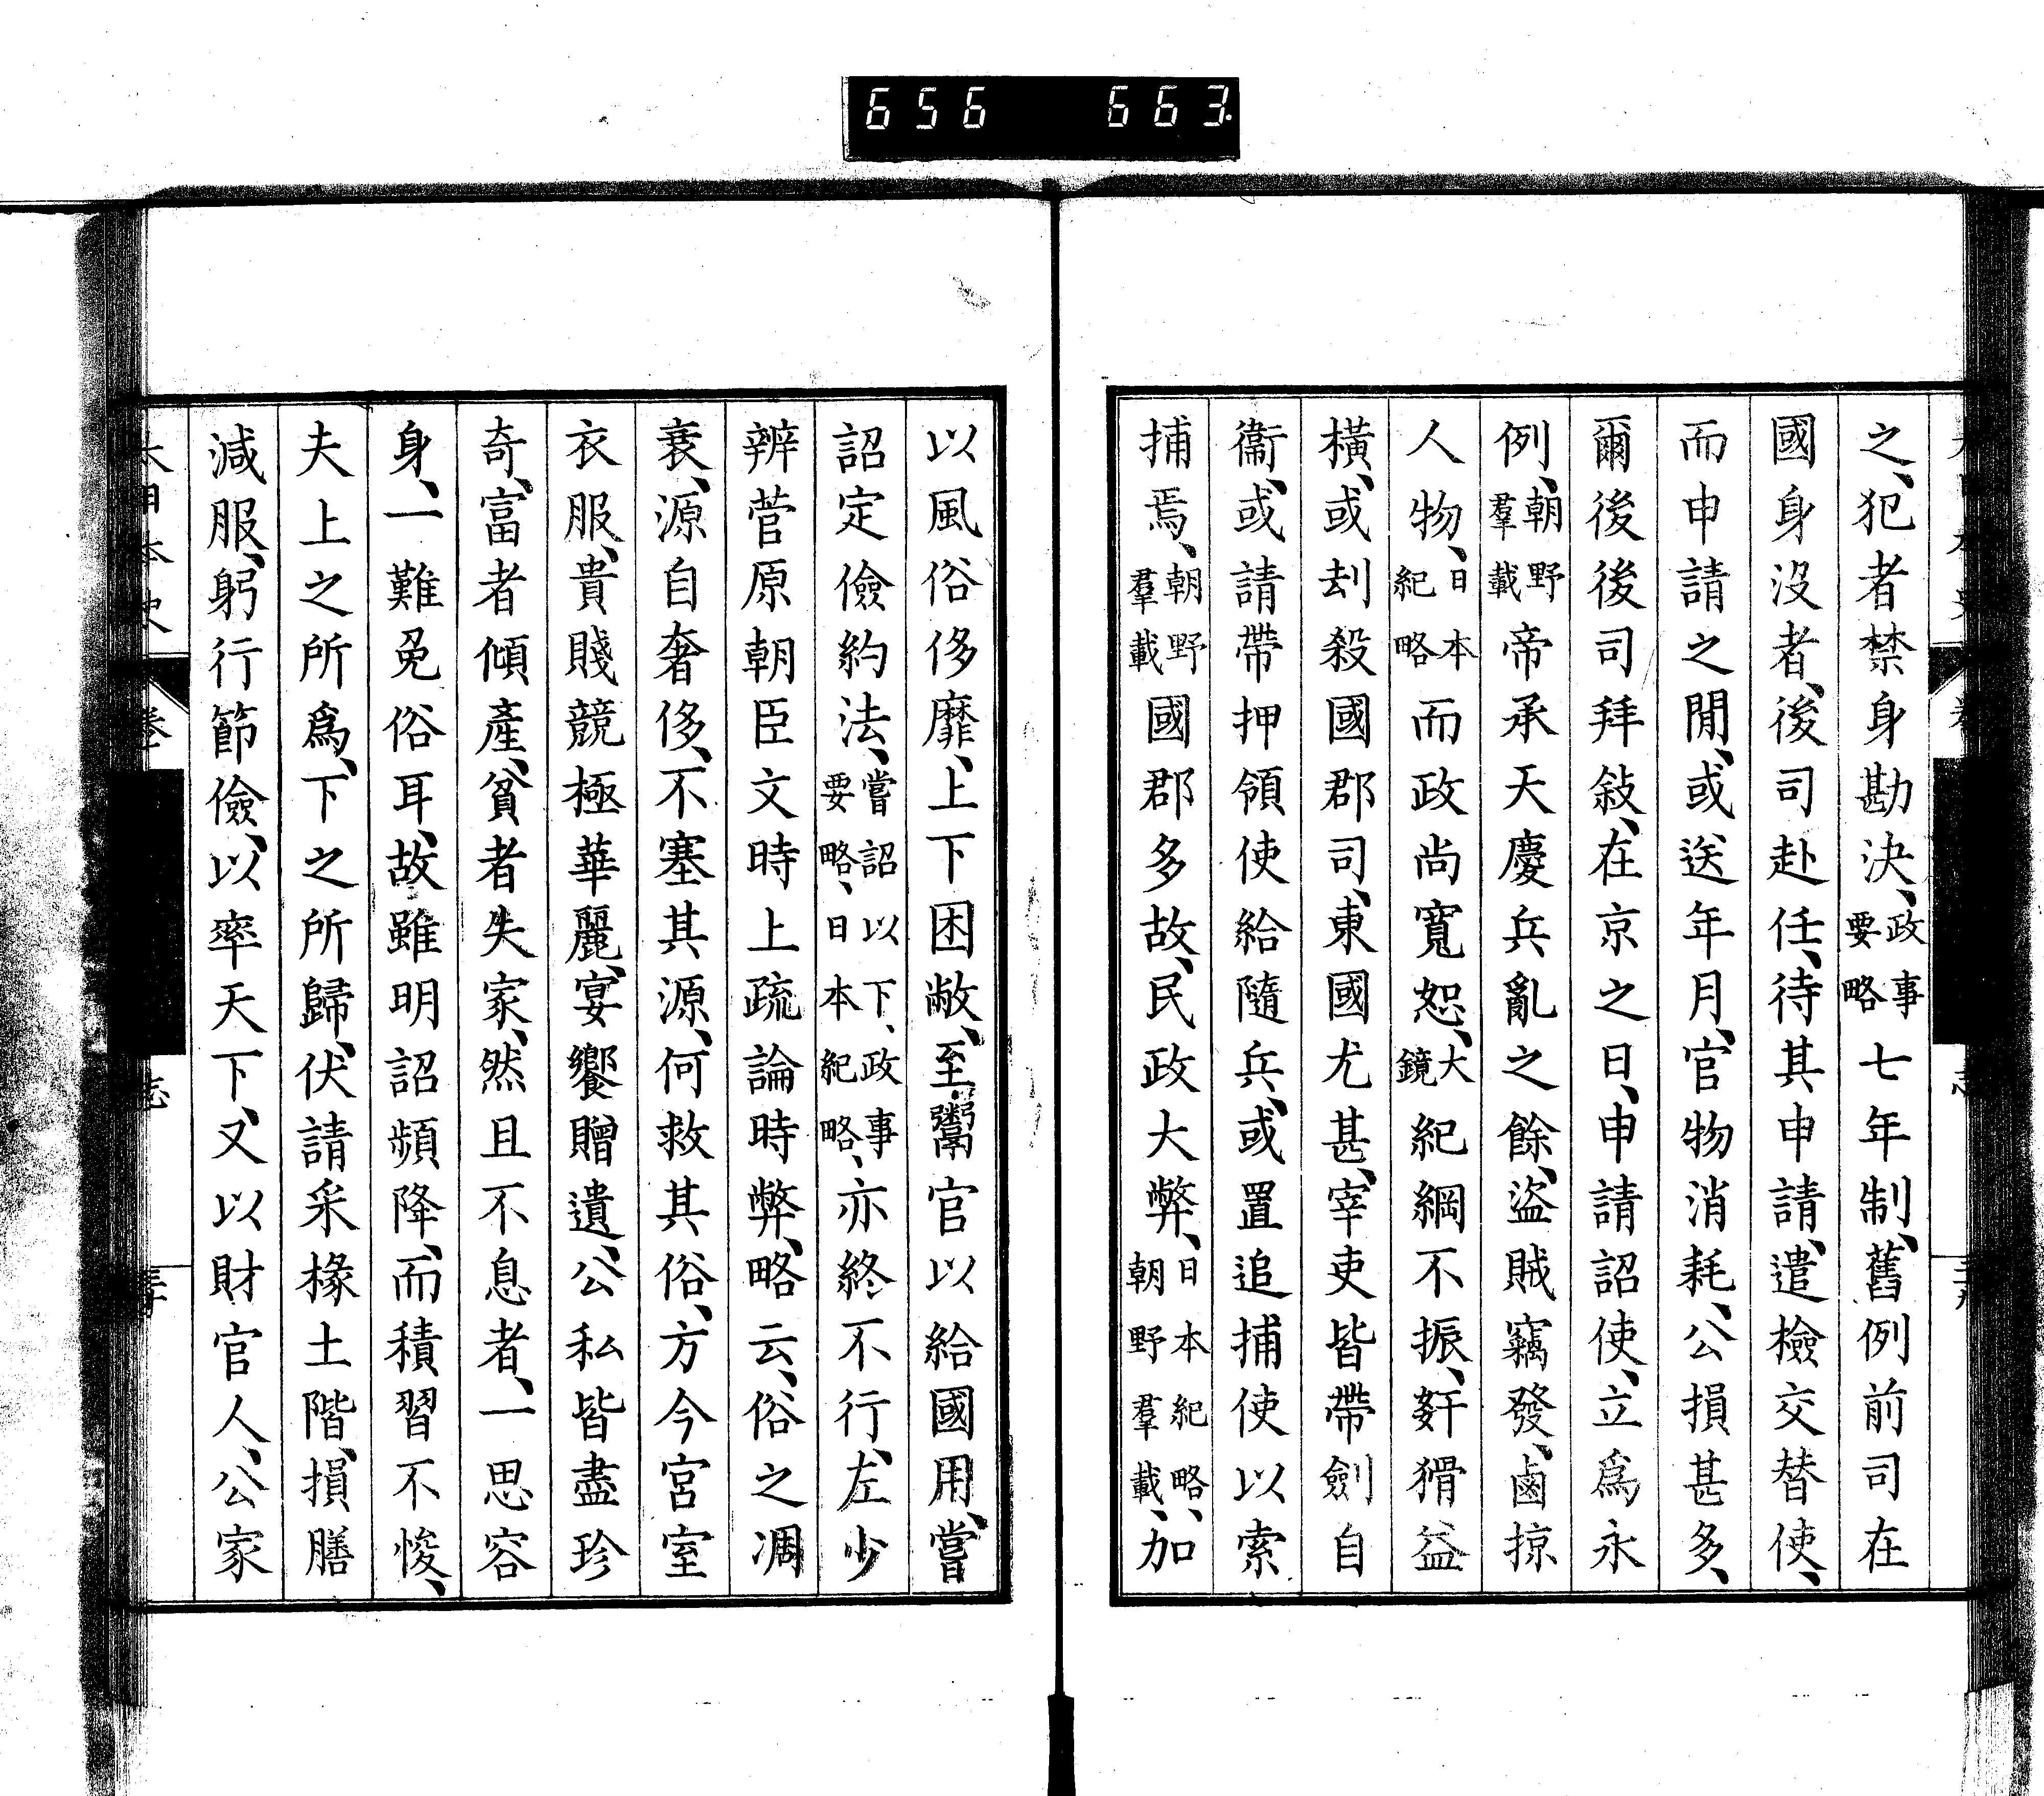 656 663
之、犯者禁身勘決、政事要略七年制、舊例前司在
國身没者、後司赴任、待其申請、遣檢交替使、
而申請之閒、或送年月、官物消耗、公損甚多、
爾後後司拜敍、在京之日、申請詔使、立爲永
例、朝野羣載帝承天慶兵亂之餘、盜賊竊發、鹵掠
人物、日本紀略而政尚寬恕、大鏡紀綱不振、姧猾益
橫、或刦殺國郡司、東國尤甚、宰吏皆帶劍自
衞、或請帶押領使給隨兵、或置追捕使以索
捕焉、朝野羣載國郡多故、民政大弊、日本紀略、朝野羣載、加
以風俗侈靡、上下困敝、至鬻官以給國用、嘗
詔定儉約法、嘗詔以下、政事要略、日本紀略、亦終不行、左少
辨菅原朝臣文時上疏論時弊、略云、俗之凋
衰、源自奢侈、不塞其源、何救其俗、方今宮室
衣服、貴賤競極華麗、宴饗贈遺、公私皆盡珍
奇、富者傾產、貧者失家、然且不息者、一思容
身、一難免俗耳、故雖明詔頻降、而積習不悛、
夫上之所爲、下之所歸、伏請采椽土階、損膳
減服、躬行節儉、以率天下、又以財官人、公家
大日本史 卷 志